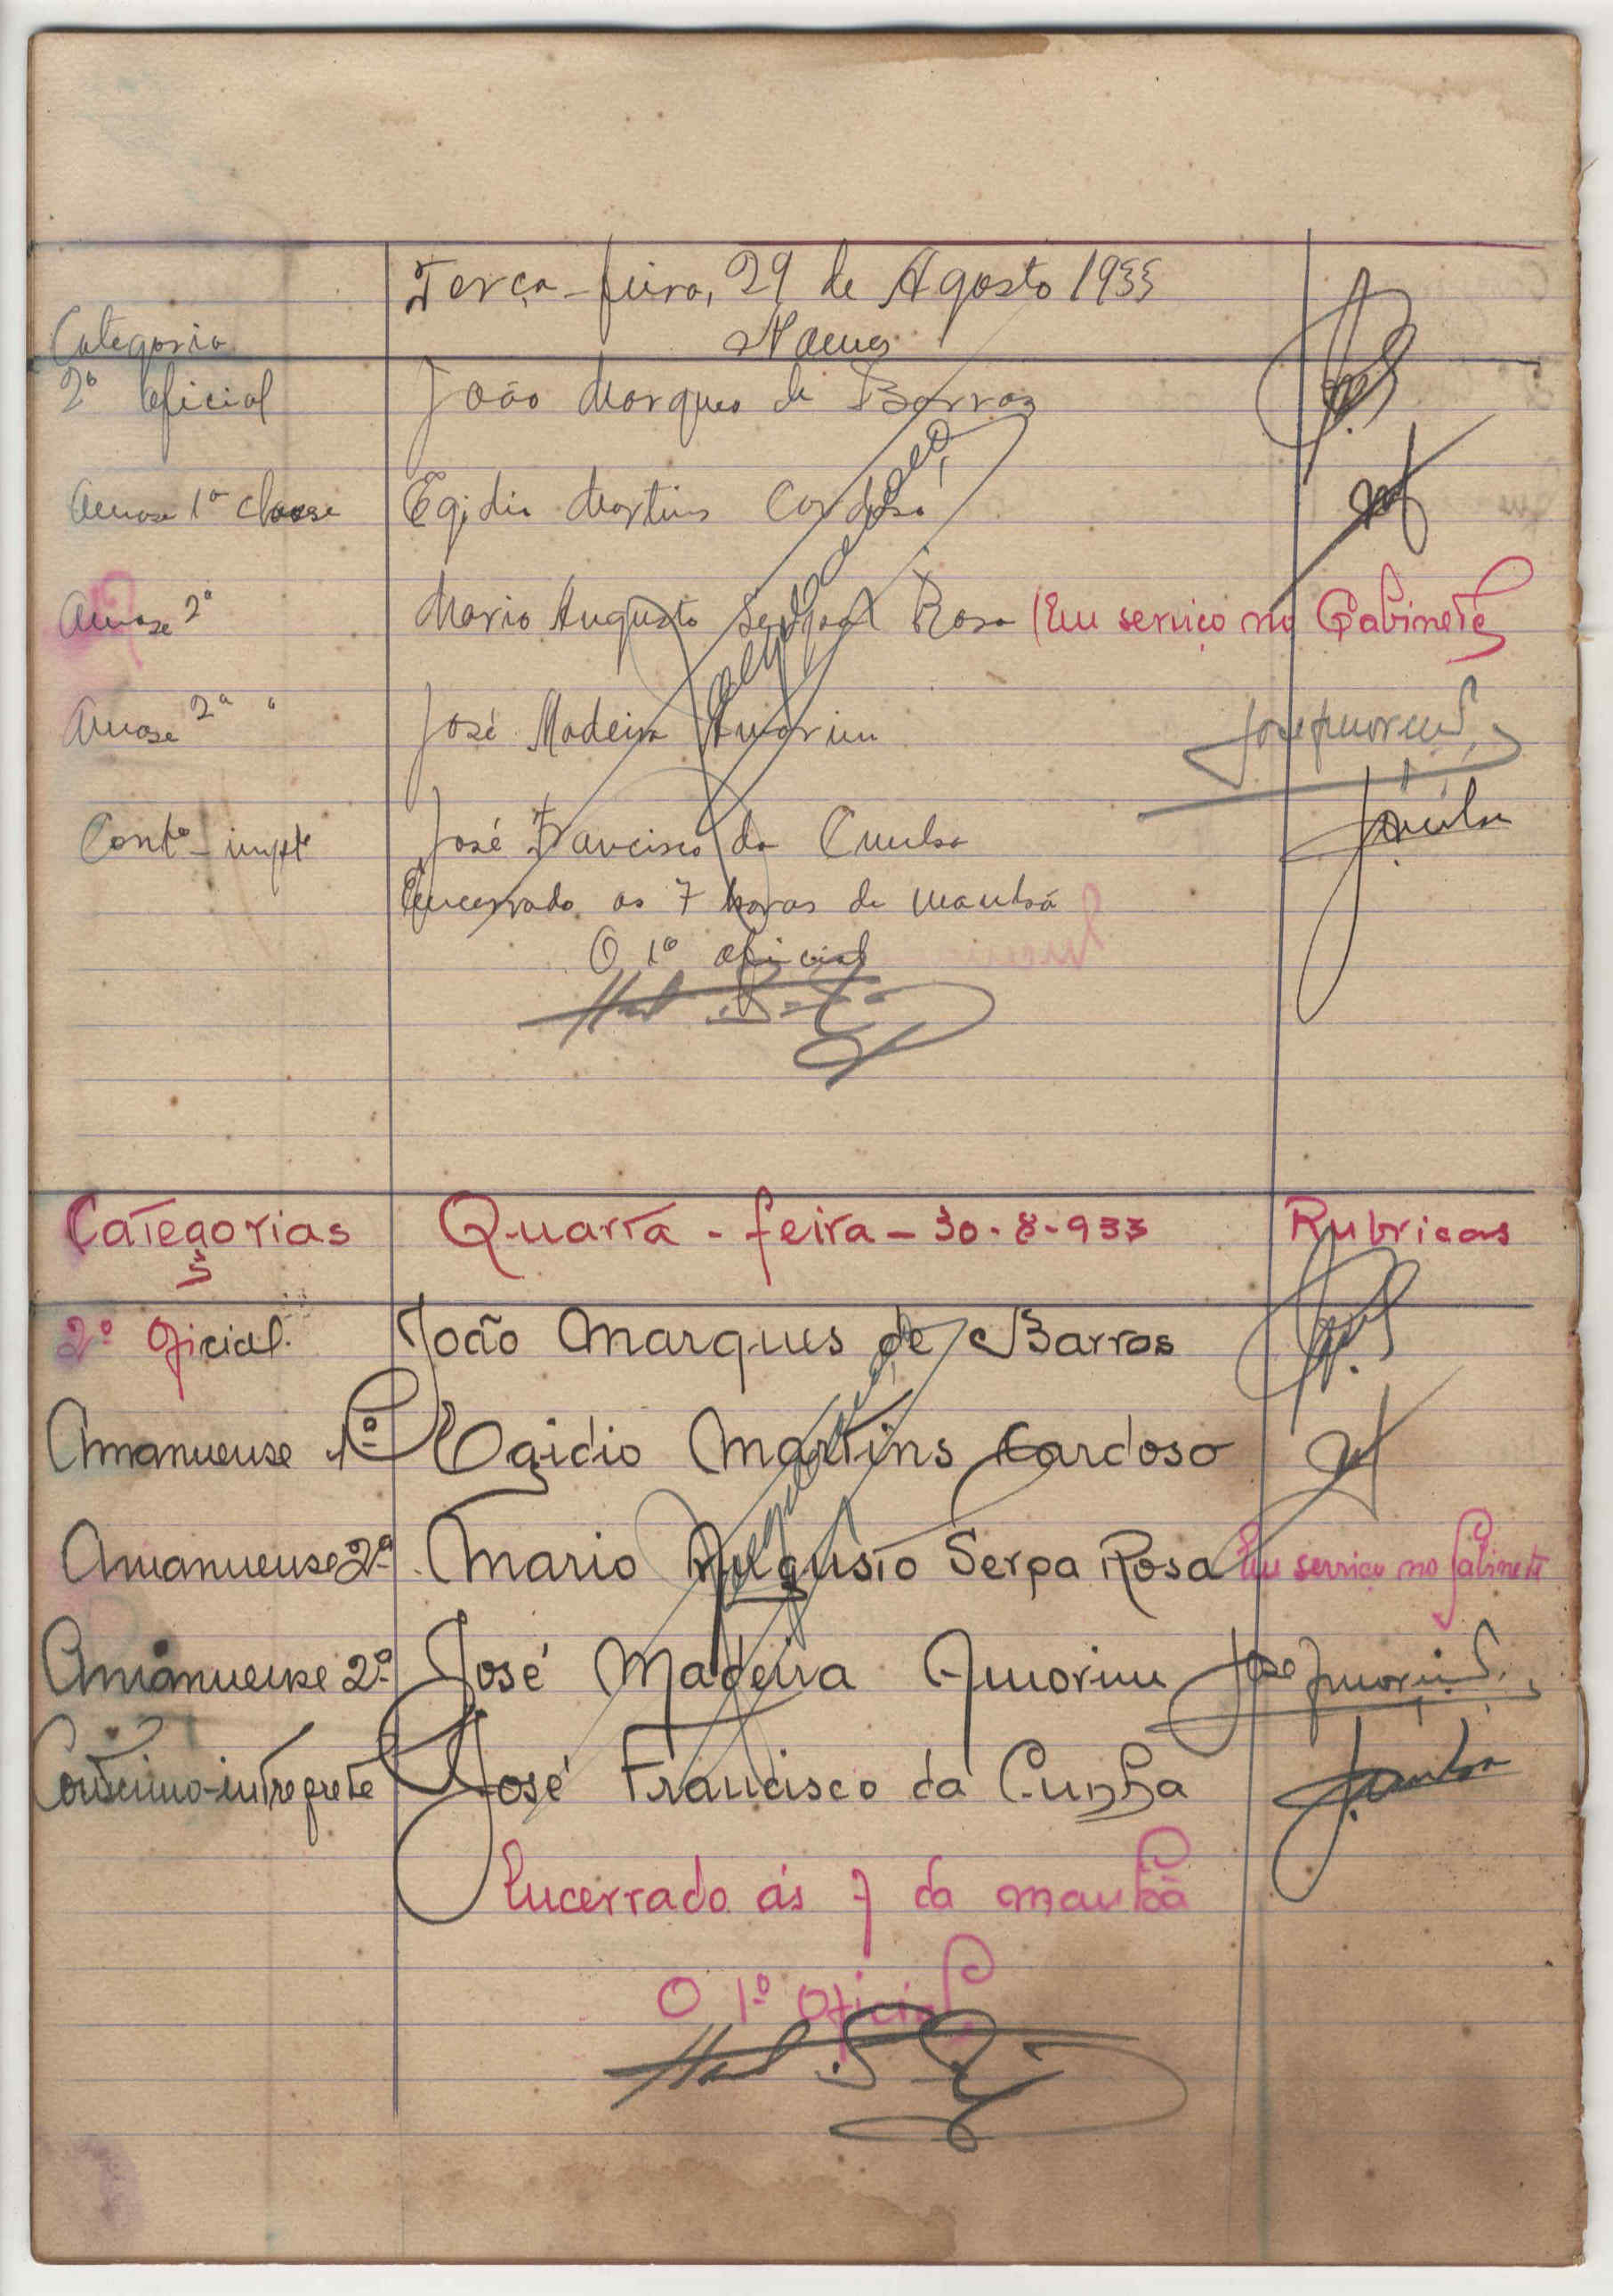 Terça-feira, 29 de Agosto 1933
Categoria Nomes
2º oficial João Marques de Barros
1ª classe Egidio Martins Cardoso
2ª Mario Augusto Serpa Rosa (Em serviço no Gabinete)
2ª " José Madeira Amorim JoséAmorim
José Francisco da Cunha JCunha
Encerrado as 7 horas da manhã
O 1º oficial
Categorias Quarta-feira-30-8-933 Rubricas
2º Oficial. João Marques de Barros
Amanuense 1º Egidio Martins Cardoso
Amanuense 2º Mario Augusto Serpa Rosa Em serviço no Gabinete
Amanuense 2º José Madeira Amorim José Amorim
Contcinuo-intreprete José Francisco da Cunha JCunha
Encerrado ás 7 da manhã
O 1º Oficial